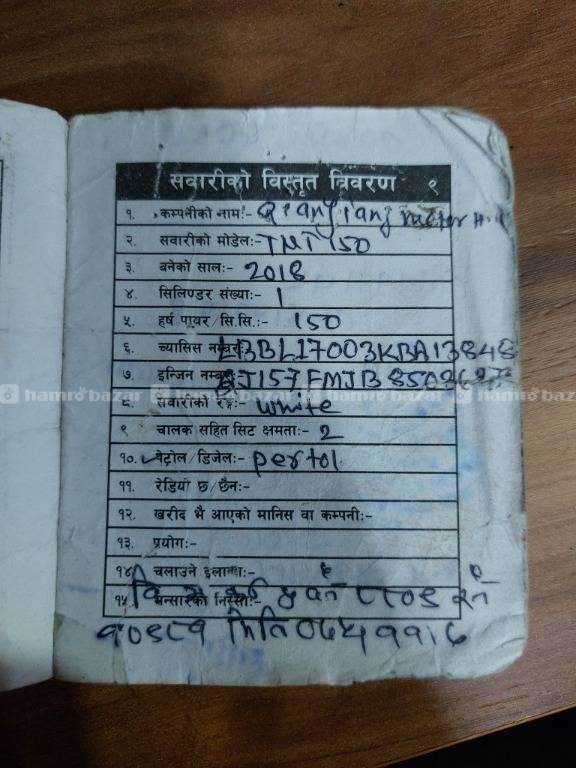 सवारीको विस्तृत विवरण ९
१. कम्पनीको नाम:- Qianjiang motor
२. सवारीको मोडेल:- TNT 150
३. बनेको साल:- 2018
४. सिलिण्डर संख्या:- 1
५. हर्ष पावर/सि.सि.:- 150
६. च्यासिस नम्बर LBBL17003KBA13848
७. इन्जिन नम्बर
hamrobazar hamrobazar hamrobazar
८. सवारीको रङ्ग:- white
९ चालक सहित सिट क्षमता:- 2
१०. पेट्रोल/डिजेल:- pertol
११. रेडियो छ/छैन:-
१२. खरीद भै आएको मानिस वा कम्पनी:-
१३. प्रयोग:-
१४. चलाउने इलाका:-
१५ भन्सारको निस्सा:-
मिति